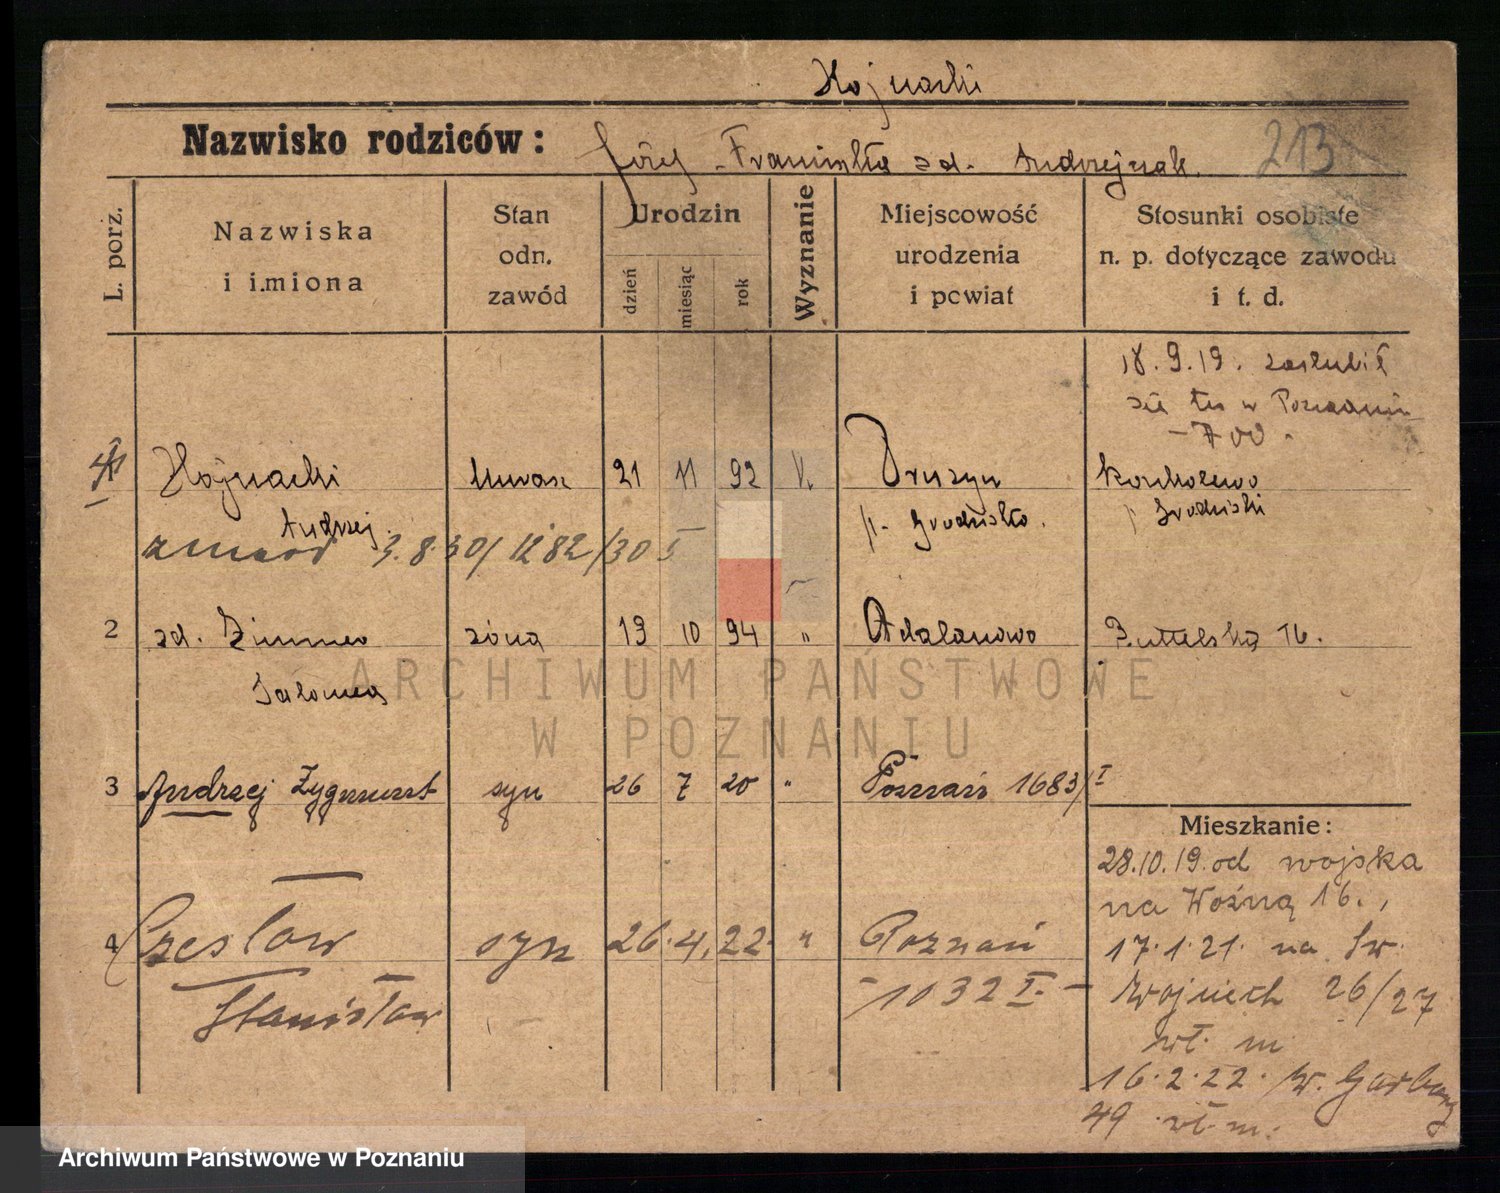 Wojnacki
Nazwisko rodziców: Józef - Franciszka zd. Andrzejczak. 213
L. porz.
Nazwiska
i imiona
Stan
odn.
zawód
Urodzin
dzień
miesiąc
rok
Wyznanie
Miejscowość
urodzenia
i powiat
Stosunki osobiste
n. p. dotyczące zawodu
i t. d.
18.9.19. zaślubił
się tu w Poznaniu
- 700 -
1 Wojnacki 21 11 92 k.
Andrzej p. Grodzisko.
zmarł 3.8.30/1282/30 I
2 zd. Zimmer żona 19 10 94 " Adalanowo Butelska 16.
Salomea
3 Andrzej Zygmunt syn 26 7 20 " Poznań 1683/I
Mieszkanie:
28.10.19. od wojska
na Woźną 16.,
4 Czesław syn 26.4.22. " Poznań
17.1.21. na Św.
- 1032 I. -
Wojciech 26/27
Stanisław
wł. m
16.2.22. W. Garbary
49 wł. m.
ARCHIWUM PAŃSTWOWE
W POZNANIU
Archiwum Państwowe w Poznaniu